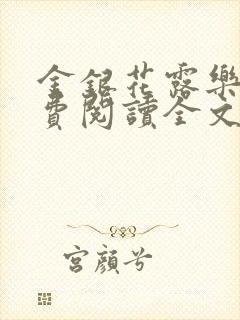 金銀花露樂
費閱讀全文
宮顏兮